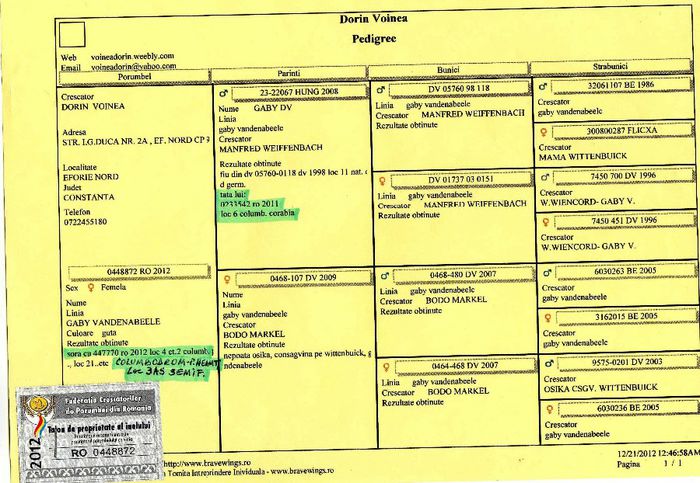 Dorin Voinea
Pedigree
Web voineadorin.weebly.com
Email voineadorin@yahoo.com
Porumbel
Crescator
DORIN VOINEA
Adresa
STR. I.G.DUCA NR. 2A , EF. NORD CP 9
Localitate
EFORIE NORD
Judet
CONSTANTA
Telefon
0722455180
0448872 RO 2012
Sex ♀ Femela
Nume
Linia
GABY VANDENABEELE
Culoare guta
Rezultate obtinute
sora cu 447770 ro 2012 loc 4 et.2 columb.
., loc 21..etc COLUMBODROM-P.NEAMT
LOC 3AS SEMIF.
Federatia Crescatorilor
de Porumbei din Romania
Talon de proprietate al inelului
2012
RO 0448872
Parinti
♂ 23-22067 HUNG 2008
Nume GABY DV
Linia
gaby vandenabeele
Crescator
MANFRED WEIFFENBACH
Rezultate obtinute
fiu din dv 05760-0118 dv 1998 loc 11 nat.
d germ.
tata lui:
0233542 ro 2011
loc 6 columb. corabia
♀ 0468-107 DV 2009
Nume
Linia
gaby vandenabeele
Crescator
BODO MARKEL
Rezultate obtinute
nepoata osika, consagvina pe wittenbuick, g
ndenabeele
Bunici
♂ DV 05760 98 118
Linia gaby vandenabeele
Crescator MANFRED WEIFFENBACH
Rezultate obtinute
♀ DV 01737 03 0151
Linia gaby vandenabeele
Crescator MANFRED WEIFFENBACH
Rezultate obtinute
♂ 0468-480 DV 2007
Linia gaby vandenabeele
Crescator BODO MARKEL
Rezultate obtinute
♀ 0464-468 DV 2007
Linia gaby vandenabeele
Crescator BODO MARKEL
Rezultate obtinute
Strabunici
♂ 32061107 BE 1986
Crescator
gaby vandenabeele
♀ 300800287 FLICXA
Crescator
MAMA WITTENBUICK
♂ 7450 700 DV 1996
Crescator
W.WIENCORD- GABY V.
♀ 7450 451 DV 1996
Crescator
W.WIENCORD- GABY V.
♂ 6030263 BE 2005
Crescator
gaby vandenabeele
♀ 3162015 BE 2005
Crescator
gaby vandenabeele
♂ 9575-0201 DV 2003
Crescator
OSIKA CSGV. WITTENBUICK
♀ 6030236 BE 2005
Crescator
gaby vandenabeele
http://www.bravewings.ro
Tomita Intreprindere Inividuala - www.bravewings.ro
12/21/2012 12:46:58AM
Pagina 1 / 1